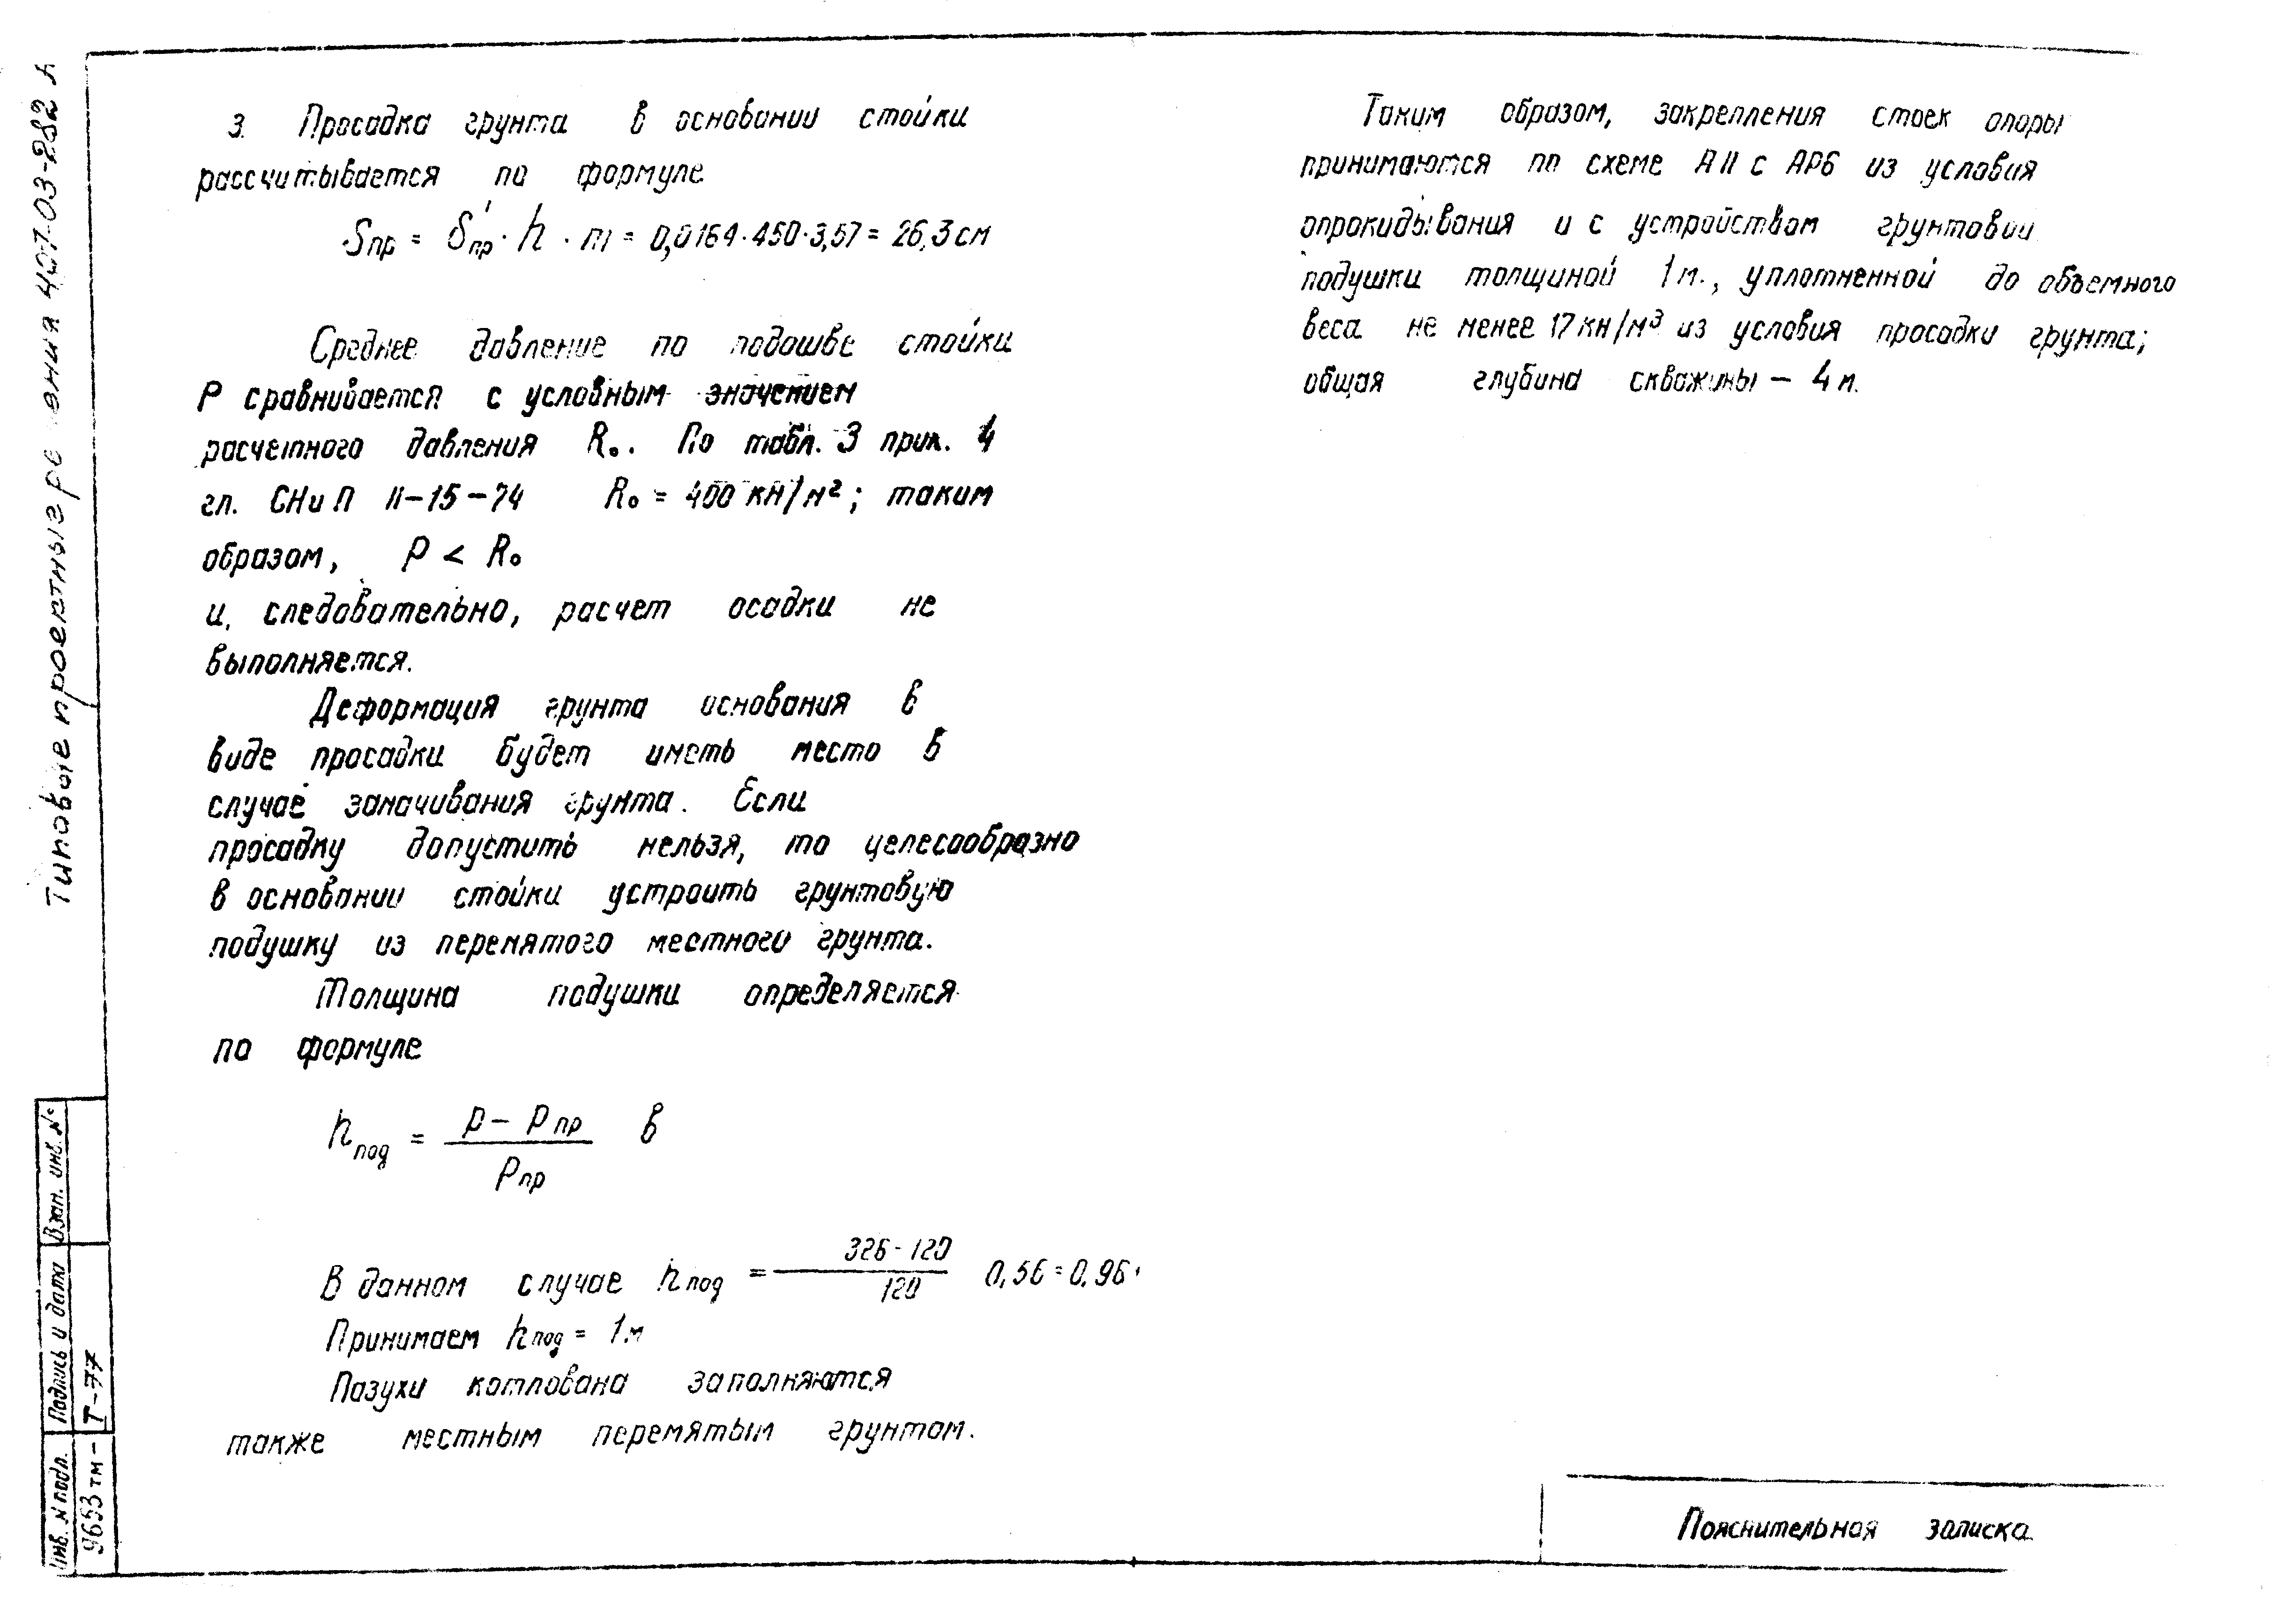 3. Просадка грунта в основании стойки
рассчитывается по формуле
Sпр = δ'пр · h · m = 0,0164·450·3,57 = 26,3 см
Среднее давление по подошве стойки
P сравнивается с условным значением
расчетного давления R₀. По табл. 3 прил. 4
гл. СНиП II-15-74 R₀ = 400 кн/м²; таким
образом, P < R₀
и, следовательно, расчет осадки не
выполняется.
Деформация грунта основания в
виде просадки будет иметь место в
случае замачивания грунта. Если
просадку допустить нельзя, то целесообразно
в основании стойки устроить грунтовую
подушку из перемятого местного грунта.
Толщина подушки определяется
по формуле
hпод = (P - Pпр) / Pпр в
В данном случае hпод = (326-120) / 120 0,56 = 0,96
Принимаем hпод = 1м
Пазухи котлована заполняются
также местным перемятым грунтом.
Таким образом, закрепления стоек опоры
принимаются по схеме АII с АР6 из условия
опрокидывания и с устройством грунтовой
подушки толщиной 1м., уплотненной до объемного
веса не менее 17кн/м³ из условия просадки грунта;
общая глубина скважины – 4м.
Пояснительная записка
Типовые проектные 407-03-282
Взам. инв. №
Подпись и дата
Инв. N подл.
9653тм-Т-77